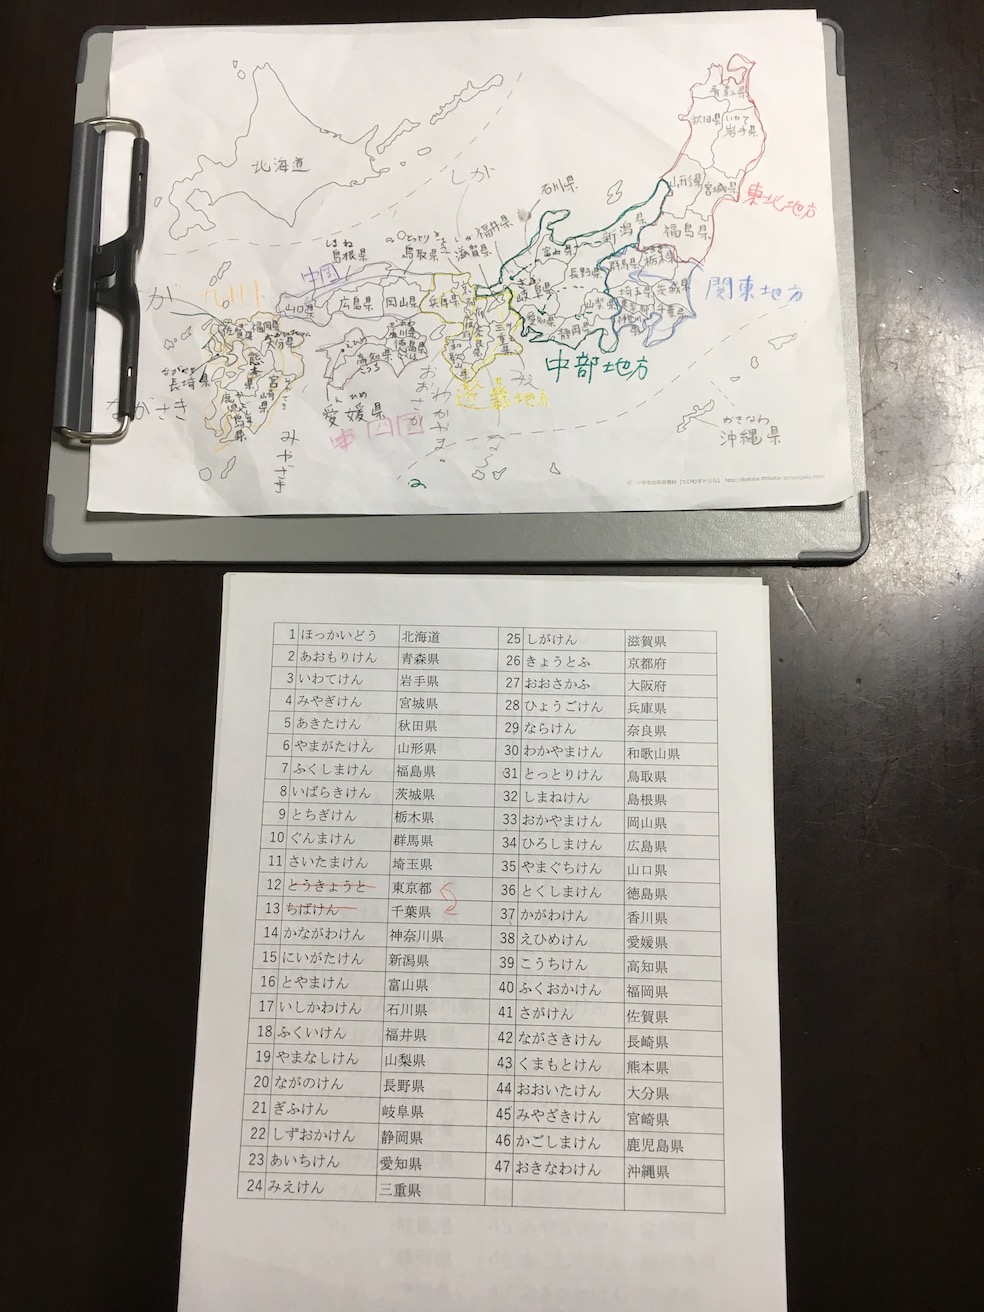 青森県
秋田県
いわて
岩手県
北海道
しが
石川県
山形県
宮城県
東北地方
福井県
新潟県
福島県
しまね
島根県
とっとり
鳥取県
滋賀県
富山県
群馬県
栃木県
中国
長野県
九州
が
山口県
広島県
岡山県
兵庫県
岐阜県
埼玉県
茨城県
関東地方
山梨県
千葉県
愛知県
静岡県
佐賀県
福岡県
大分県
徳島県
奈良県
三重県
熊本県
高知県
こうち
中部地方
ながさき
長崎県
宮崎県
えひめ
愛媛県
おおさか
わかやま。
みえ
なら
鹿児島県
ながさき
みやざき
四国
近畿地方
おきなわ
沖縄県
2
1 ほっかいどう 北海道
2 あおもりけん 青森県
3 いわてけん 岩手県
4 みやぎけん 宮城県
5 あきたけん 秋田県
6 やまがたけん 山形県
7 ふくしまけん 福島県
8 いばらきけん 茨城県
9 とちぎけん 栃木県
10 ぐんまけん 群馬県
11 さいたまけん 埼玉県
12 とうきょうと 東京都
13 ちばけん 千葉県
14 かながわけん 神奈川県
15 にいがたけん 新潟県
16 とやまけん 富山県
17 いしかわけん 石川県
18 ふくいけん 福井県
19 やまなしけん 山梨県
20 ながのけん 長野県
21 ぎふけん 岐阜県
22 しずおかけん 静岡県
23 あいちけん 愛知県
24 みえけん 三重県
25 しがけん 滋賀県
26 きょうとふ 京都府
27 おおさかふ 大阪府
28 ひょうごけん 兵庫県
29 ならけん 奈良県
30 わかやまけん 和歌山県
31 とっとりけん 鳥取県
32 しまねけん 島根県
33 おかやまけん 岡山県
34 ひろしまけん 広島県
35 やまぐちけん 山口県
36 とくしまけん 徳島県
37 かがわけん 香川県
38 えひめけん 愛媛県
39 こうちけん 高知県
40 ふくおかけん 福岡県
41 さがけん 佐賀県
42 ながさきけん 長崎県
43 くまもとけん 熊本県
44 おおいたけん 大分県
45 みやざきけん 宮崎県
46 かごしまけん 鹿児島県
47 おきなわけん 沖縄県